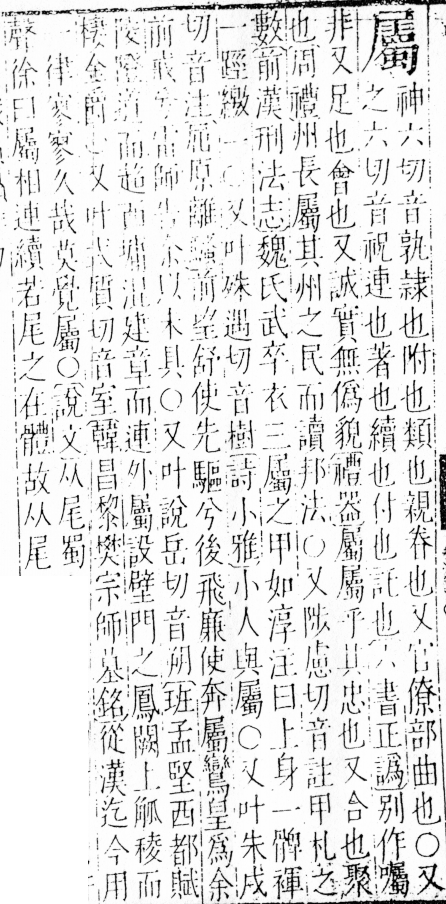 屬神六切音孰隸也附也類也親眷也又官僚部曲也○又
之六切音祝連也著也續也付也託也六書正譌別作囑
非又足也會也又誠實無偽貌禮器屬屬乎其忠也又合也聚
也周禮州長屬其州之民而讀邦法○又陟慮切音註甲札之
數前漢刑法志魏氏武卒衣三屬之甲如淳注曰上身一髀褌
一踁繳一○又叶殊遇切音樹詩小雅小人與屬○又叶朱戍
切音注屈原離騷前望舒使先驅兮後飛廉使奔屬鸞皇為余
前戒兮雷師告余以未具○又叶說岳切音朔班孟堅西都賦
陵隥道而超西墉混建章而連外屬設璧門之鳳闕上觚稜而
棲金爵○又叶式質切音室韓昌黎樊宗師墓銘從漢迄今用
律寥寥久哉莫覺屬○說文从尾蜀
聲徐曰屬相連續若尾之在體故从尾